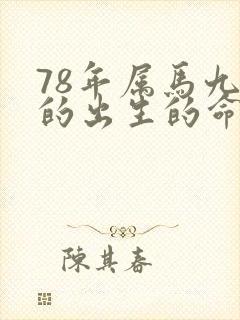 78年属馬九
的出生的命
陳其春